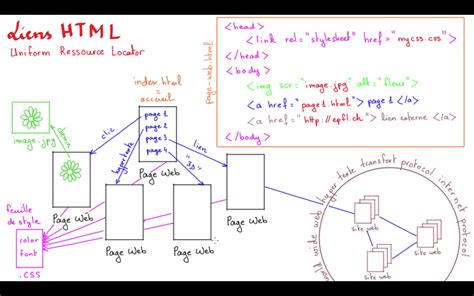 Liens HTML
Uniform Ressource Locator
page-web.html
<head>
<link rel="stylesheet" href="mycss.css">
</head>
<body>
<img scr="image.jpg" alt="fleur">
<a href="page1.html"> page 1 </a>
<a href="http://epfl.ch"> lien externe </a>
</body>
index.html
= accueil
page 1
page 2
page 3
page 4
clic
hypertexte
"3D"
lien
image.jpg
dessin
Page Web
Page Web
Page Web
Page Web
Page Web
Page Web
feuille
de style
color
font
.CSS
site web
site web
site web
world wide web hyper texte transfert protocol internet protocol